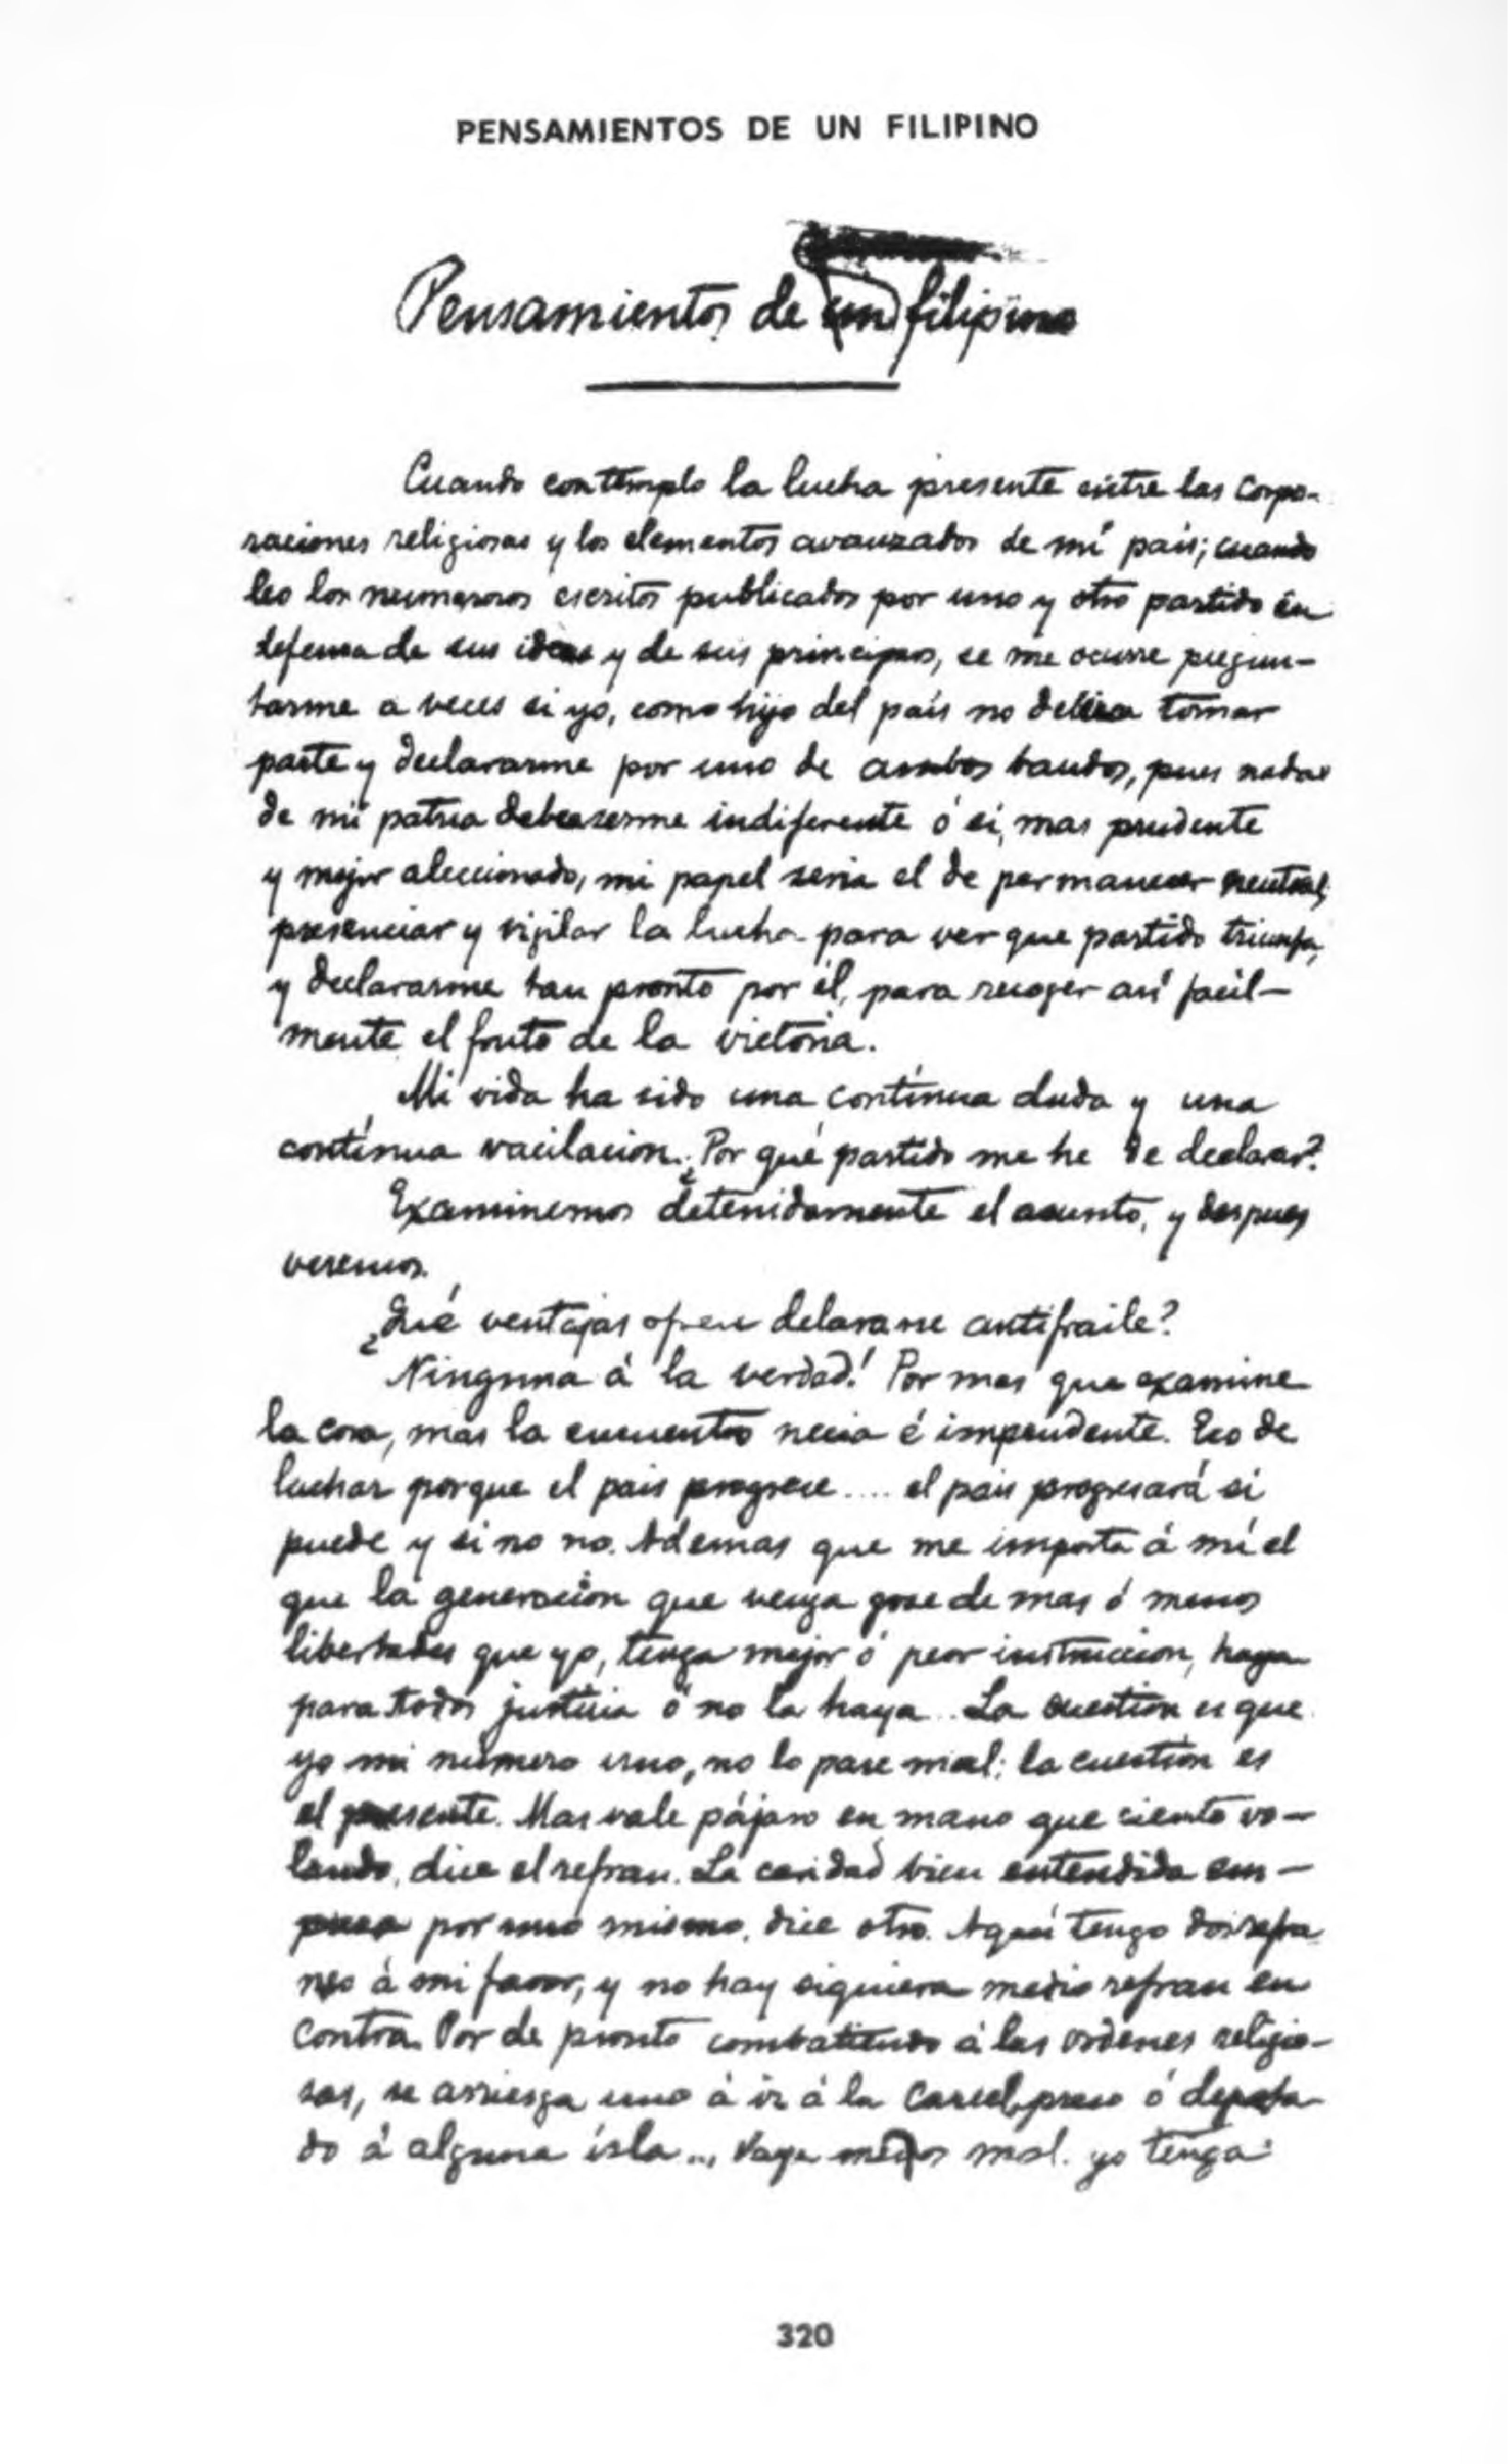 PENSAMIENTOS DE UN FILIPINO
Pensamientos de un filipino
Cuando contemplo la lucha presente entre las Corpo-
raciones religiosas y los elementos avanzados de mi país; cuando
leo los numerosos escritos publicados por uno y otro partido en
defensa de sus ideas y de sus principios, se me ocurre pregun-
tarme a veces si yo, como hijo del país no debiera tomar
parte y declararme por uno de ambos bandos, pues nada
de mi patria debe serme indiferente ó si, mas prudente
y mejor aleccionado, mi papel seria el de permanecer neutral,
presenciar y vigilar la lucha para ver que partido triunfa,
y declararme tan pronto por él, para recoger así facil-
mente el fruto de la victoria.
Mi vida ha sido una contínua duda y una
contínua vacilacion. ¿Por qué partido me he de declarar?
Examinemos detenidamente el asunto, y despues
veremos.
¿Qué ventajas ofrece delararme antifraile?
Ninguna á la verdad! Por mas que examine
la cosa, mas la encuentro necia é imprudente. Eso de
luchar porque el pais progrese .... el pais progresará si
puede y si no no. Ademas que me importa á mí el
que la generacion que venga goze de mas ó menos
libertades que yo, tenga mejor ó peor instruccion, haya
para todos justicia ó no la haya.. La cuestion es que
yo mi número uno, no lo pase mal: la cuestion es
el presente. Mas vale pájaro en mano que ciento vo-
lando, dice el refran. La caridad bien entendida em-
pieza por uno mismo, dice otro. Aquí tengo dos refra
nes á mi favor, y no hay siquiera medio refran en
contra. Por de pronto combatiendo á las ordenes religio-
sas, se arriesga uno á ir á la Carcel, preso ó deporta-
do á alguna isla.., Vaya menos mal. yo tenga